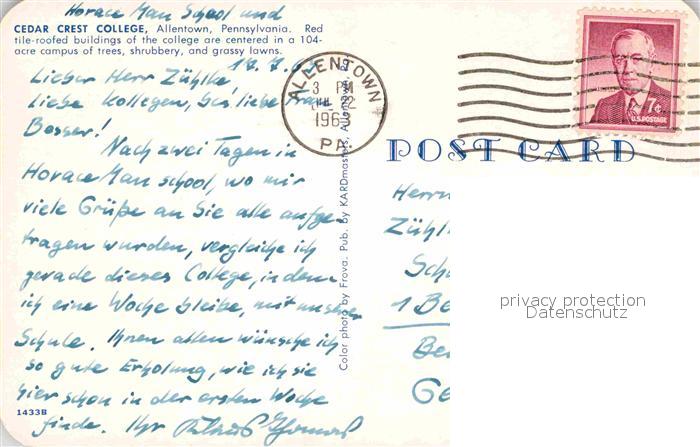 Horace Man School und
CEDAR CREST COLLEGE, Allentown, Pennsylvania. Red
tile-roofed buildings of the college are centered in a 104-
acre campus of trees, shrubbery, and grassy lawns.
Lieber Herr Zühlke!
liebe Kollegen, liebe Frau
Besser!
Nach zwei Tagen in
Horace Man school, wo mir
viele Grüße an Sie alle aufge-
tragen wurden, vergleiche ich
gerade dieses College, in dem
ich eine Woche bleibe, mit unserer
Schule. Ihnen allen wünsche ich
so gute Erholung, wie ich sie
hier schon in der ersten Woche
finde. Ihr
1433B
Color photo by Frova. Pub. by KARDmasters, Allentown,
ALLENTOWN
3 PM
JUL 22
1963
PA.
7¢
U.S. POSTAGE
POST CARD
Herrn
Zühl
Sch
1 Be
Be
Ge
privacy protection
Datenschutz